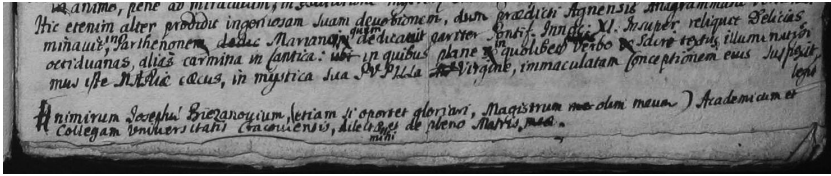 animo, pene ad miraculum, in
Hic etenim alter prodidit ingeniosam suam devotionem, dum prædicti Agnensis Anagrammata
minavit, Parthenonem Marianam quem dedicavit pariter Pontif. Innoc. XI. Insuper reliquit Delicias
occiduanas, alias carmina in Cantica: in quibus plane in quolibet verbo Sacri textus illuminatissi
mus iste cæcus, in mystica sua Virgine, immaculatam Conceptionem eius suspexit,
# nimirum Josephū Biezanovium, (etiam si oportet gloriari, Magistrum olim meum) Academicum et
Collegam Universitatis Cracoviensis, dilectū et de pleno Matris.
mihi